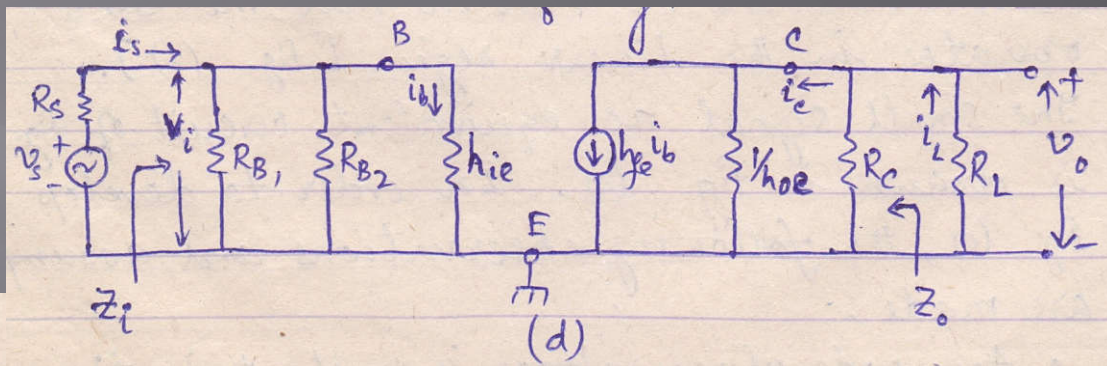 i_s B C
R_s v_s + - v_i R_B1 R_B2 i_b h_ie h_fe i_b 1/h_oe i_c R_C i_L R_L + v_o -
E
Z_i Z_o
(d)